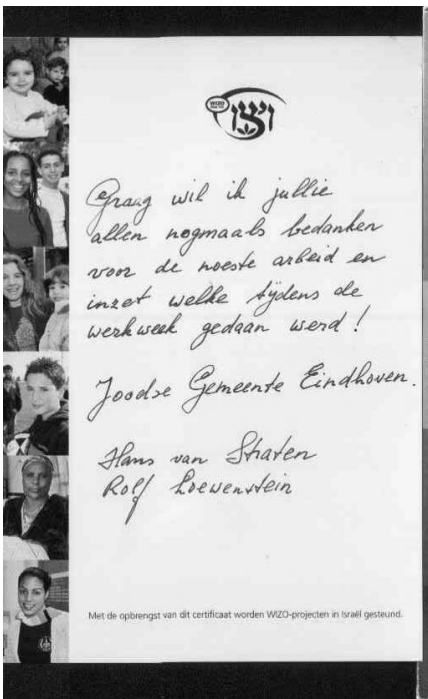 WIZO
ויצו
Graag wil ik jullie
allen nogmaals bedanken
voor de noeste arbeid en
inzet welke tijdens de
werkweek gedaan werd!
Joodse Gemeente Eindhoven.
Hans van Straten
Rolf Loewenstein
Met de opbrengst van dit certificaat worden WIZO-projecten in Israël gesteund.